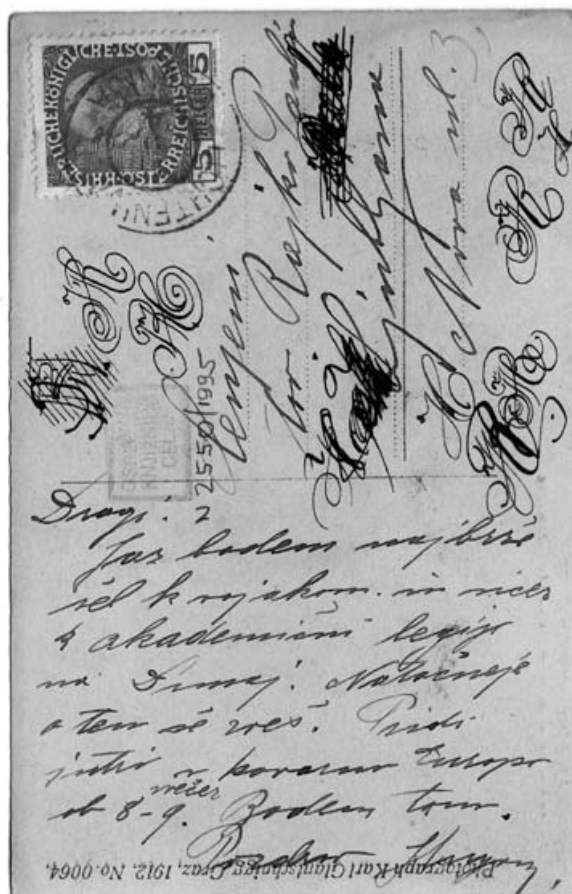 KAISERLICHE KÖNIGLICHE ÖSTERREICHISCHE POST
5 HELLER 5
OSREDNJA
KNJIŽNICA
CELJE
2550/1995
Cenjeni
Rajko
Ljubljana
Nova ul. 3
Dragi!
Jaz bodem najbrže
šel k vojakom in sicer
k akademični legiji
na Dunaj. Natančneje
o tem še zveš. Pridi
jutri v kavarno Europa
zvečer
ob 8-9. Bodem tam.
Pozdrav
Photograph Karl Glantschnigg, Graz, 1912. No. 0064.